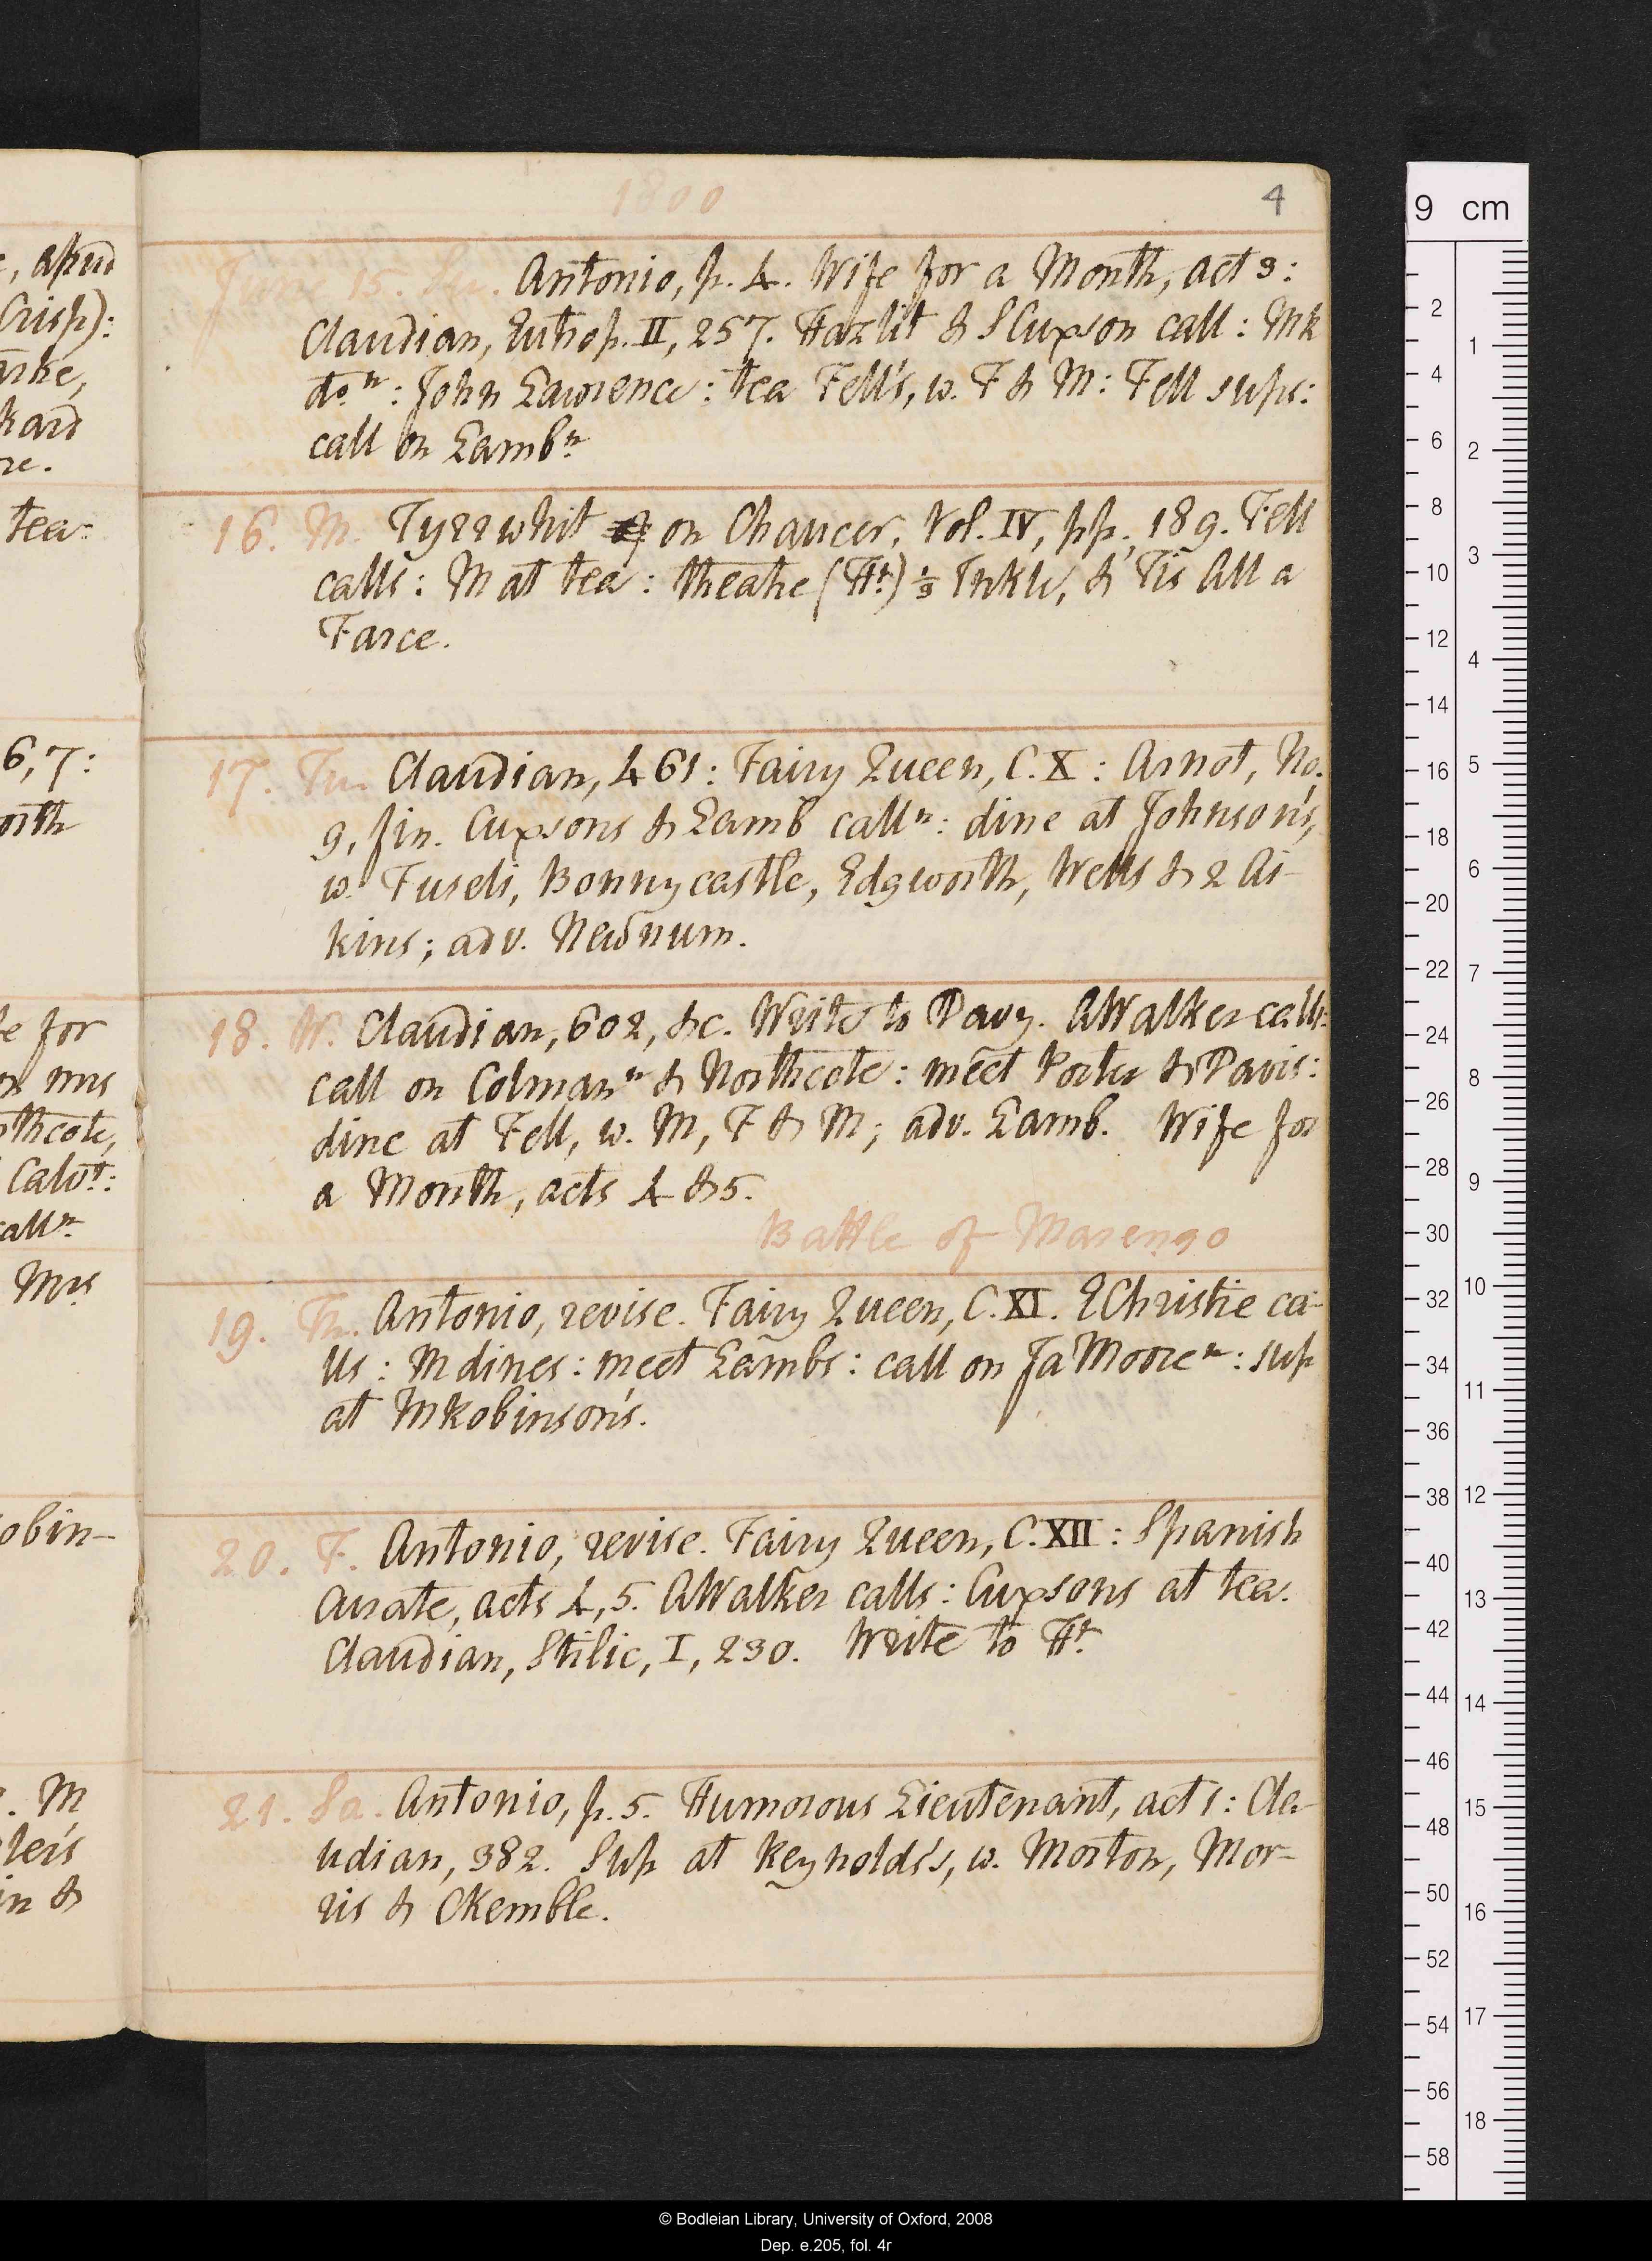 1800
4
June 15. Su. Antonio, p. 4. Wife for a Month, act 3:
Claudian, Eutrop. II, 257. Hazlit & SCupson call: MR
do.n: John Lawrence: tea Fell's, w. F & M: Fell sups:
call on Lambn
16. M. Tyrrwhit on Chaucer, Vol. IV, pp. 189. Fell
calls: M at tea: theatre (Ht) 1/3 Inkle, & Tis All a
Farce.
17. Tu. Claudian, 461: Fairy Queen, C. X: Arnot, No.
9, fin. Cupsons & Lamb calln: dine at Johnson's,
w. Fuseli, Bonnycastle, Edgworth, Wells & 2 Ai-
kins; adv. Newnum.
18. W. Claudian, 602, &c. Write to Davy. AWalker calls:
call on Colmann & Northcote: meet Porter & Davis:
dine at Fell, w. M, F & M; adv. Lamb. Wife for
a Month, acts 4 & 5.
Battle of Marengo
19. Th. Antonio, revise. Fairy Queen, C. XI. EChristie ca-
lls: M dines: meet Lambs: call on Ja Mooren: sup
at MRobinson's.
20. F. Antonio, revise. Fairy Queen, C. XII: Spanish
Curate, acts 4, 5. AWalker calls: Cupsons at tea.
Claudian, Stilic, I, 230. Write to Ht
21. Sa. Antonio, p. 5. Humorous Lieutenant, act 1: Cla-
udian, 382. Sup at Reynolds's, w. Morton, Mor-
ris & CKemble.
, apud
Crisp):
tea:
6, 7:
for
mrs
Calvt:
calln
Mrs
obin-
M
&
9 cm
© Bodleian Library, University of Oxford, 2008
Dep. e.205, fol. 4r